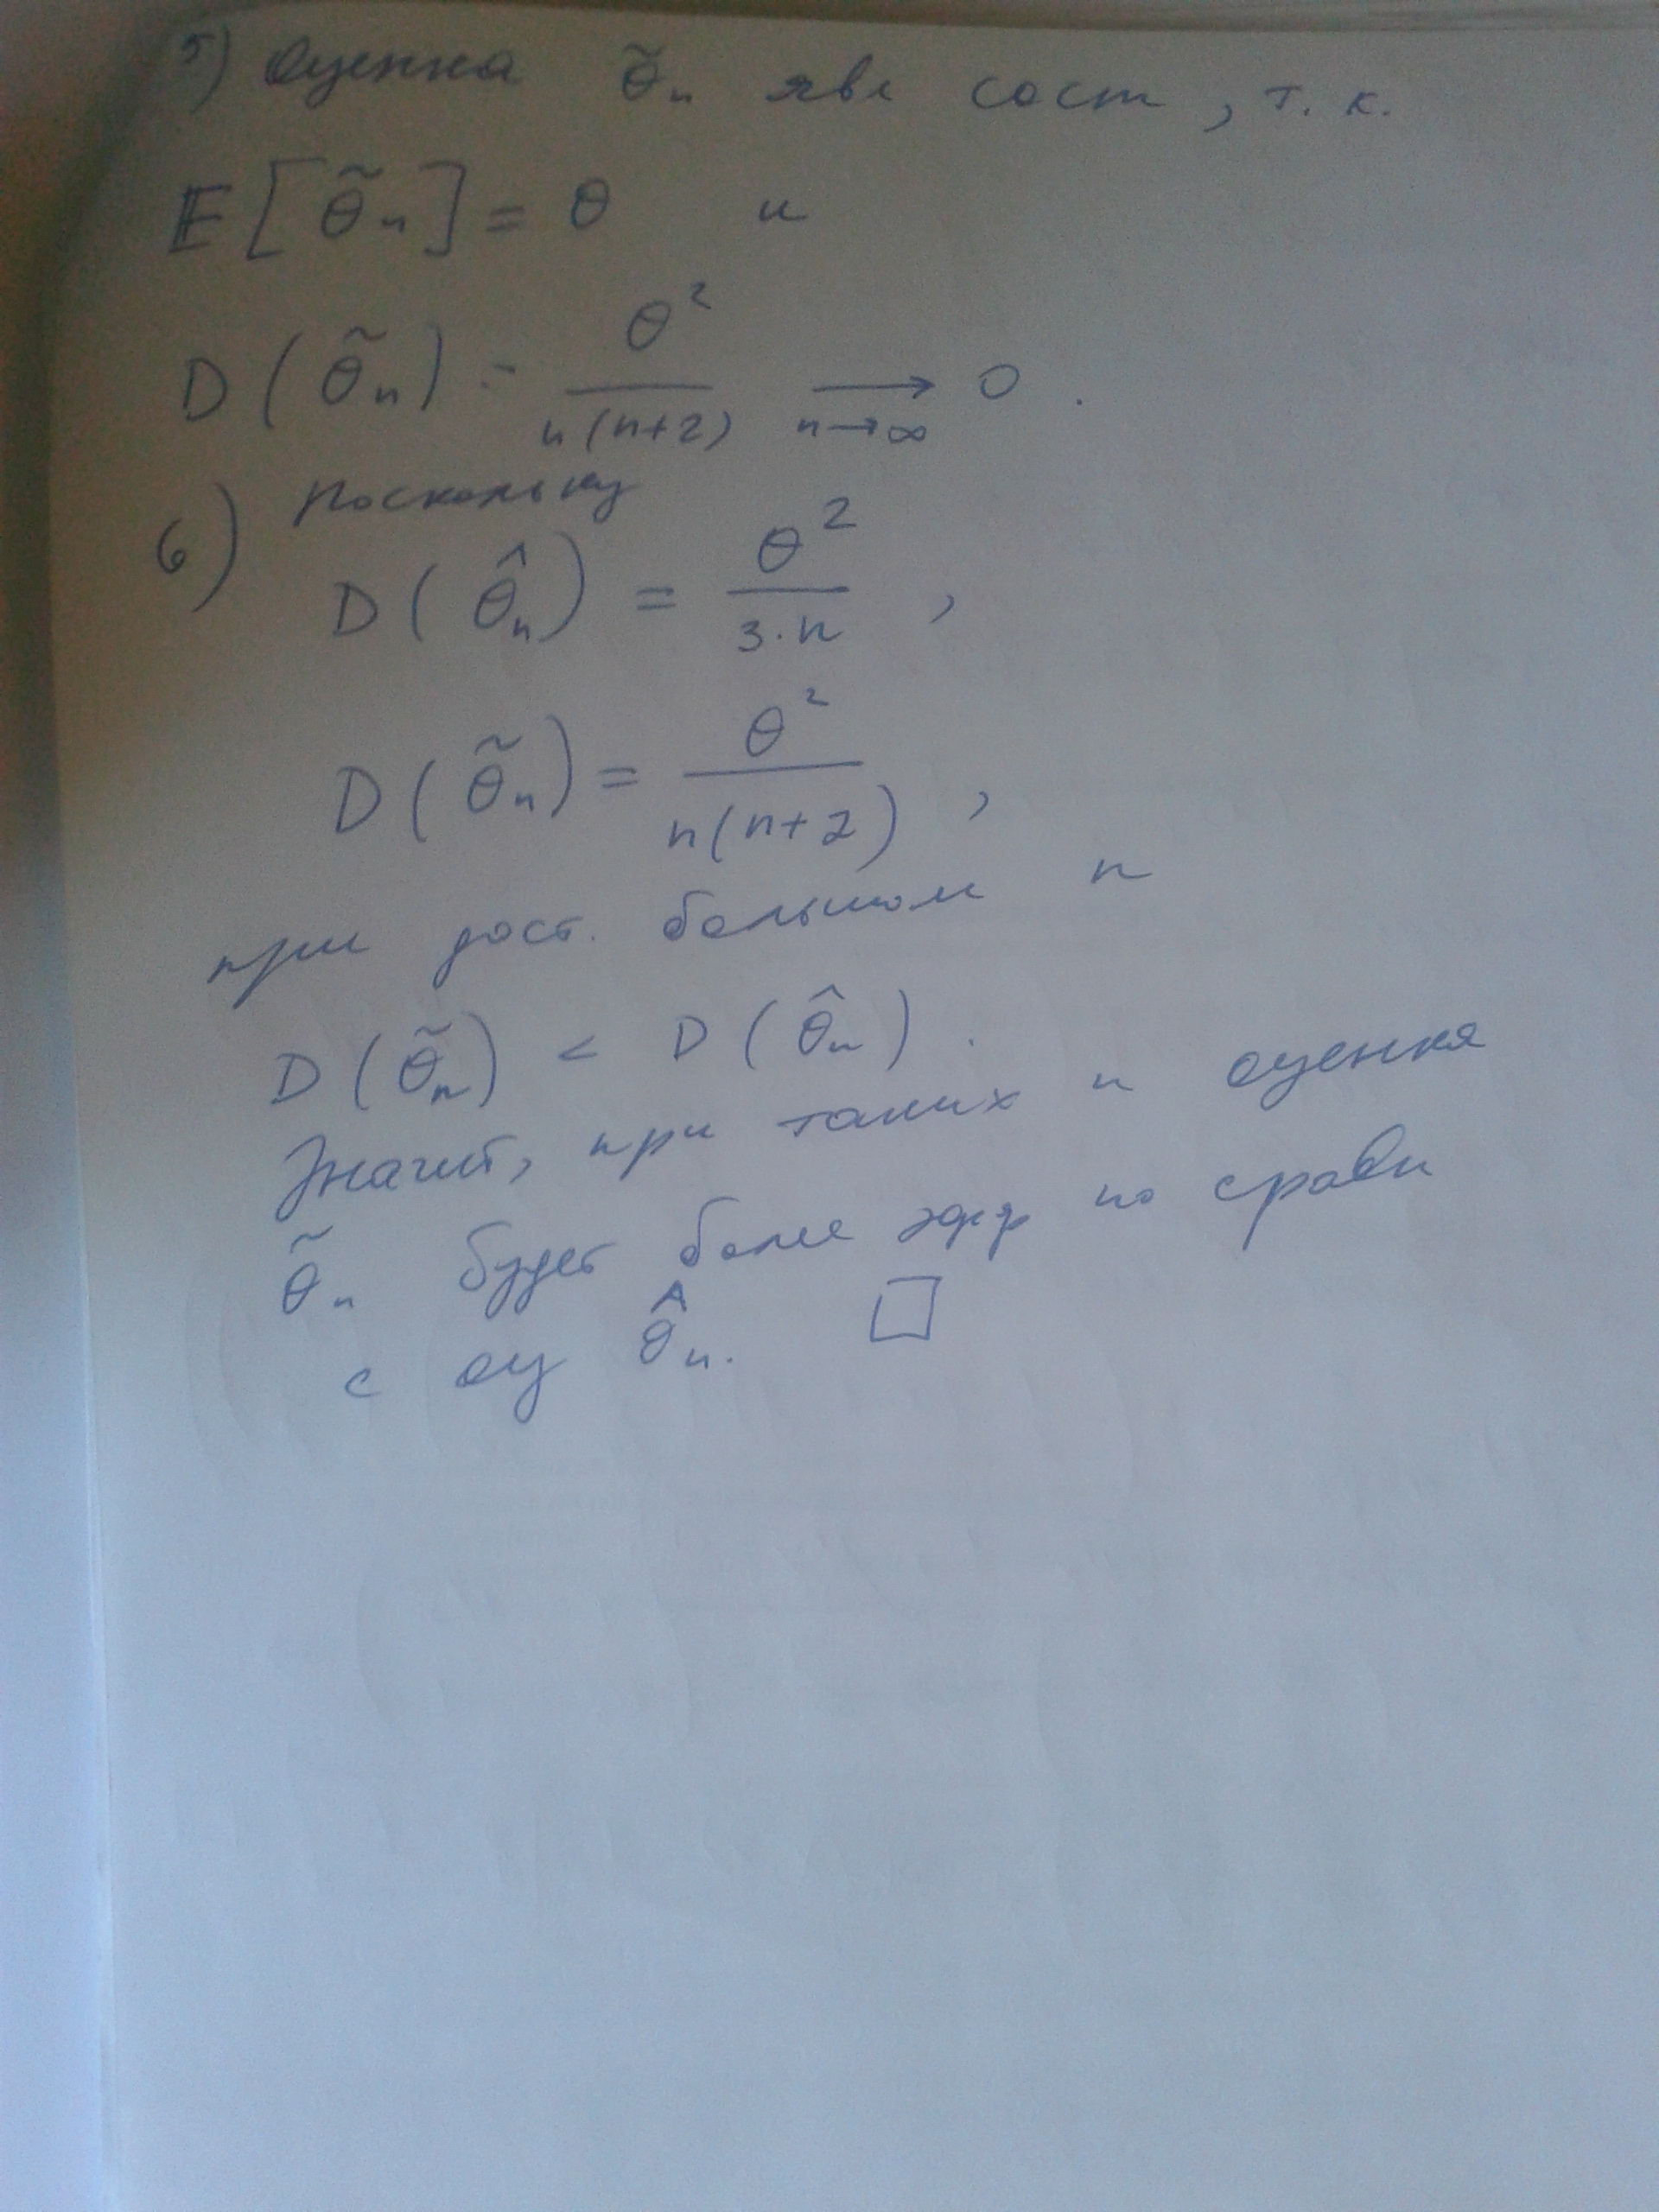 5) Оценка θ̃ₙ явл сост, т. к.
E[θ̃ₙ] = θ и
D(θ̃ₙ) = θ² / n(n+2) ⟶ 0 . n→∞
6) Поскольку
D(θ̂ₙ) = θ² / 3·n ,
D(θ̃ₙ) = θ² / n(n+2) ,
при дост. большом n
D(θ̃ₙ) < D(θ̂ₙ) .
Значит, при таких n оценка
θ̃ₙ будет более эфф по сравн
с оц θ̂ₙ. □